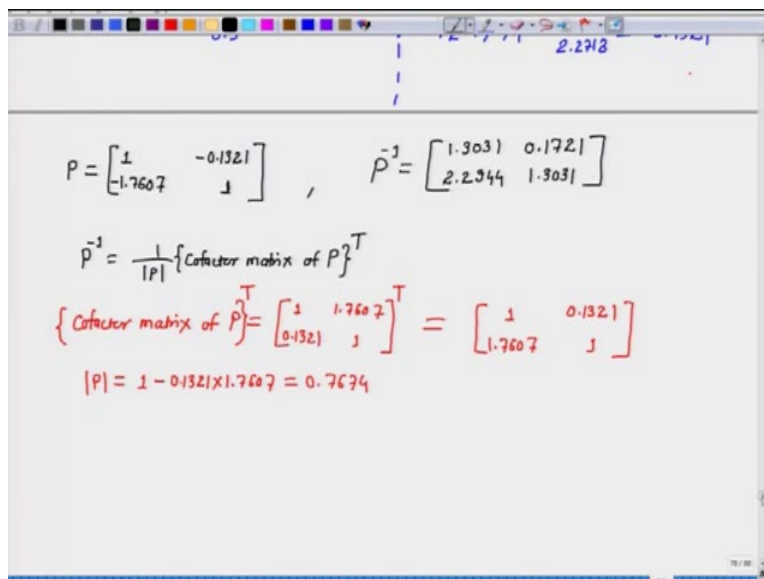 2.2713
P = [1 -0.1321
-1.7607 1] , P⁻¹ = [1.3031 0.1721
2.2944 1.3031]
P⁻¹ = 1/|P| {Cofactor matrix of P}ᵀ
{Cofactor matrix of P}ᵀ = [1 1.7607
0.1321 1]ᵀ = [1 0.1321
1.7607 1]
|P| = 1 - 0.1321 x 1.7607 = 0.7674